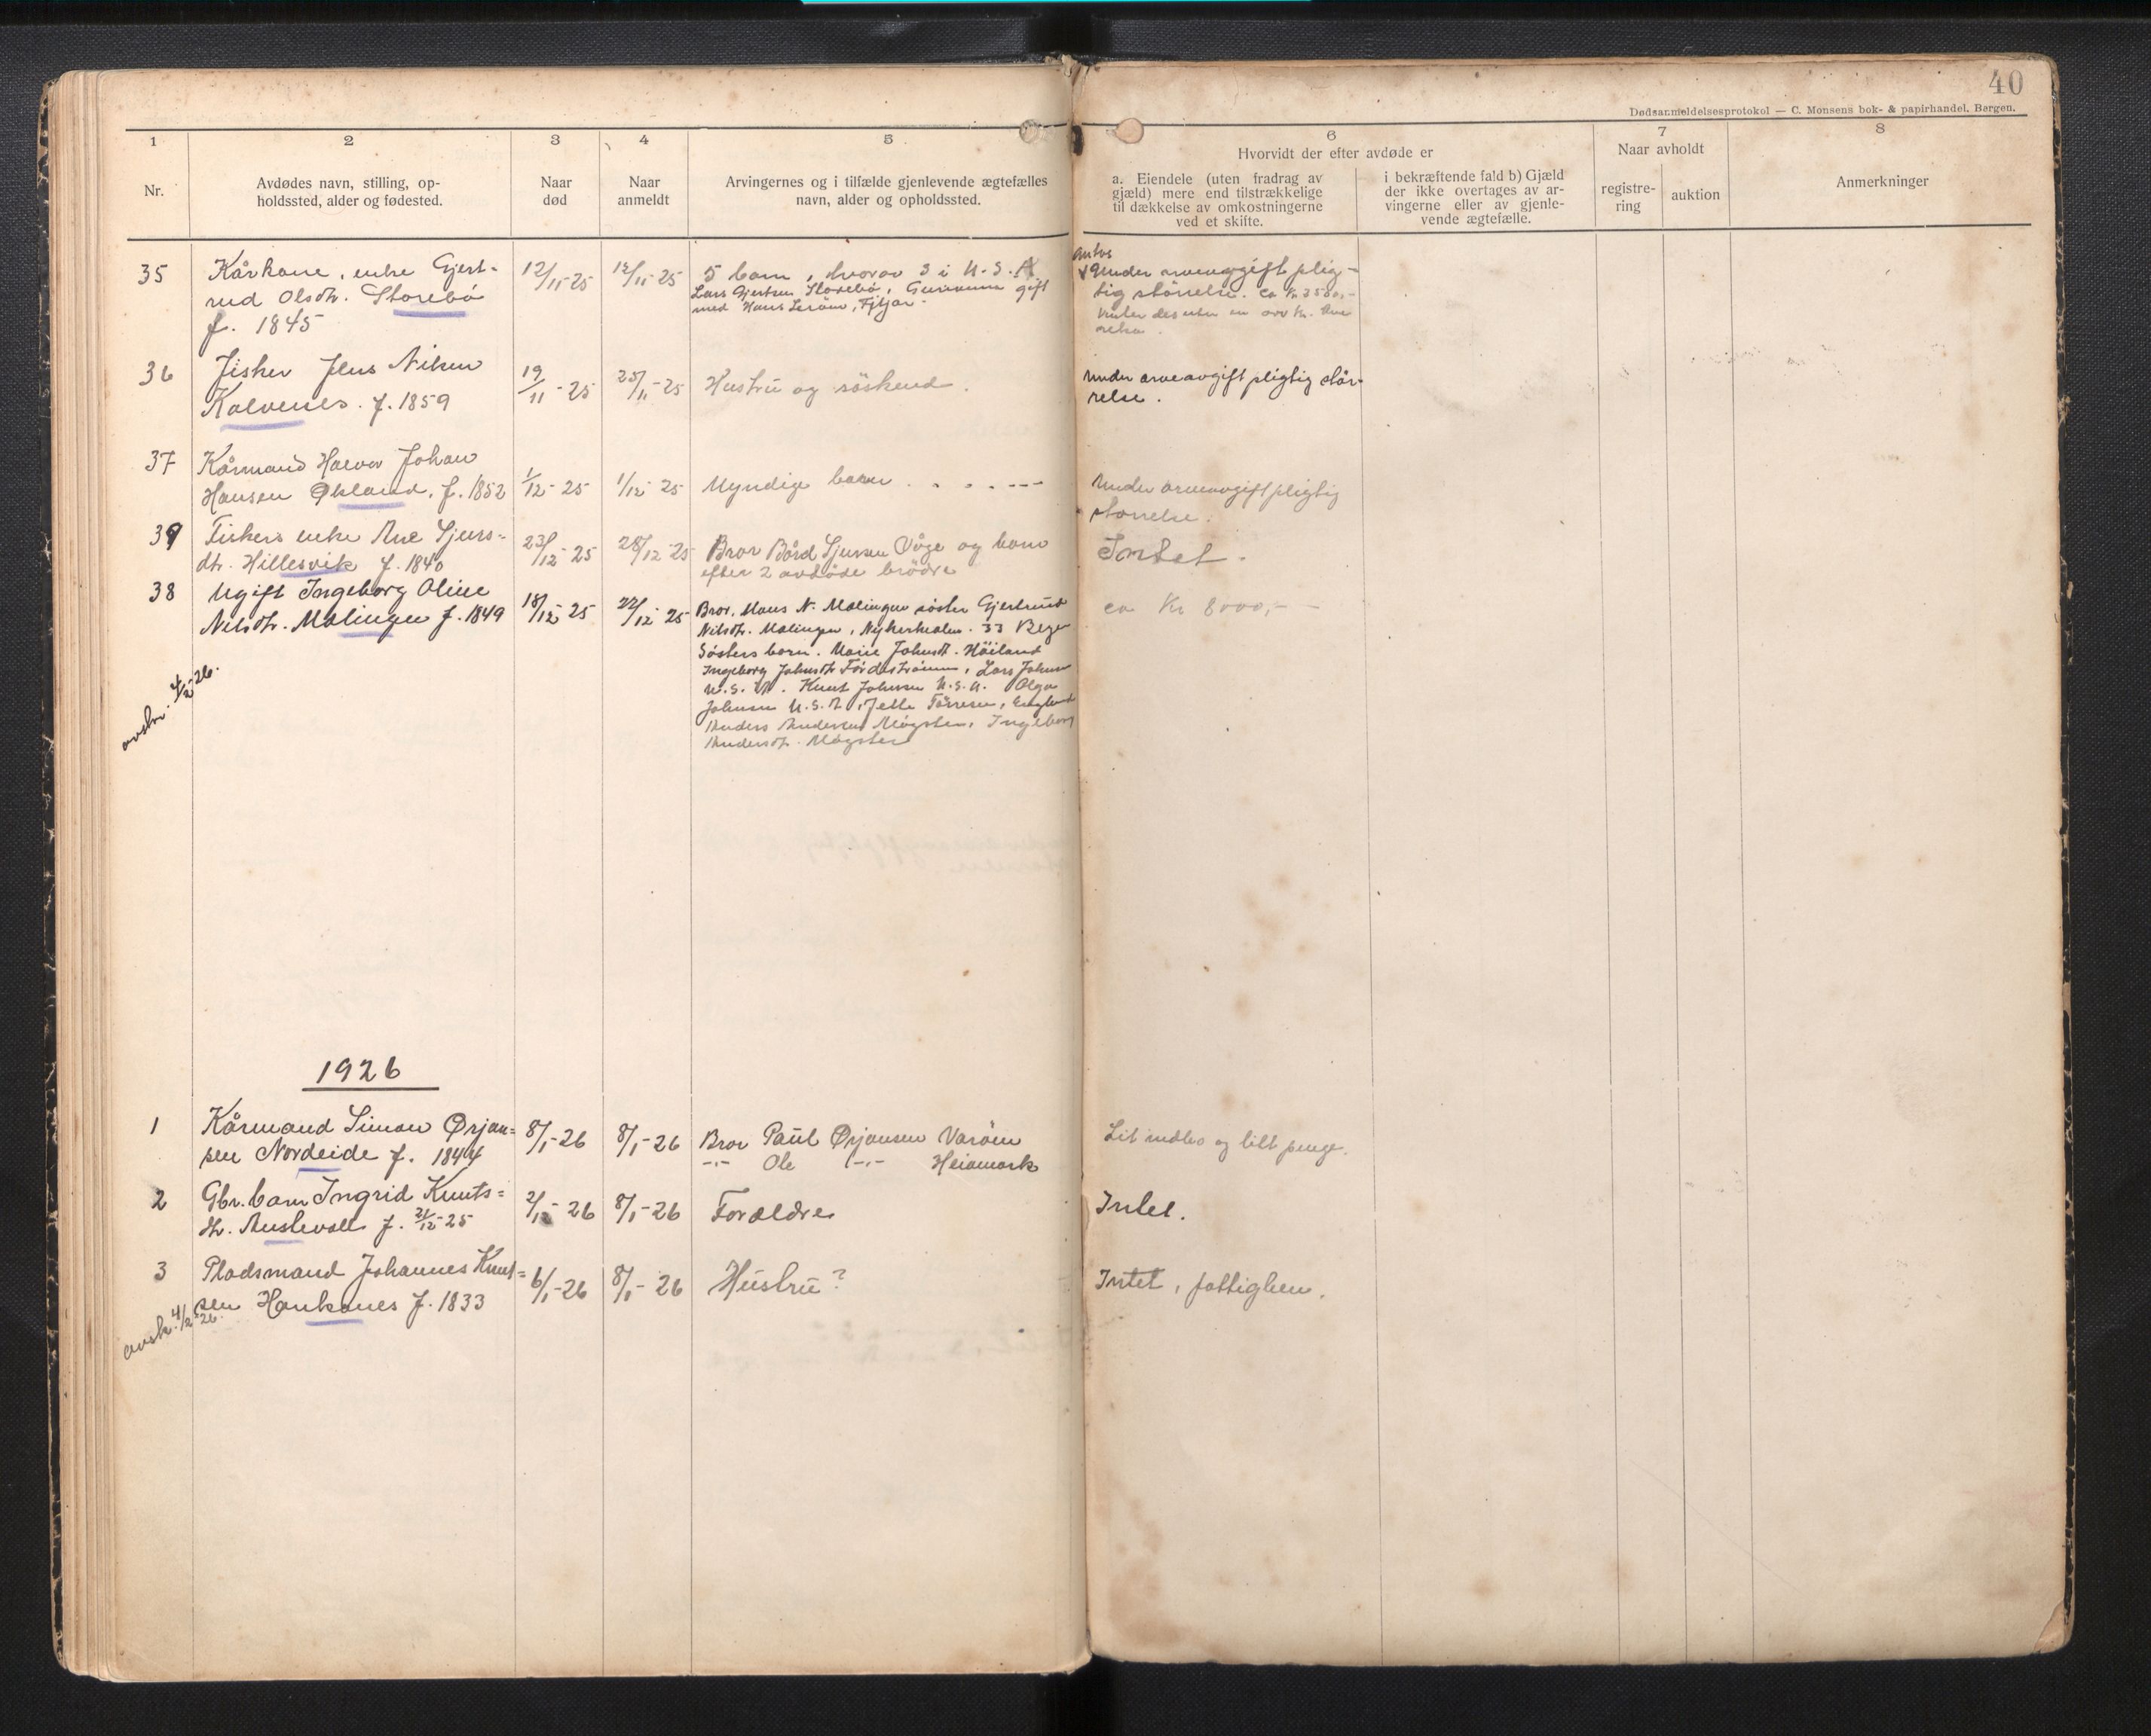 40
Dødsanmeldelsesprotokol — C. Monsens bok- & papirhandel. Bergen.
1
2
3
4
5
6
7
8
Nr.
Avdødes navn, stilling, op-
holdssted, alder og fødested.
Naar
død
Naar
anmeldt
Arvingernes og i tilfælde gjenlevende ægtefælles
navn, alder og opholdssted.
Hvorvidt der efter avdøde er
a. Eiendele (uten fradrag av
gjæld) mere end tilstrækkelige
til dækkelse av omkostningerne
ved et skifte.
i bekræftende fald b) Gjæld
der ikke overtages av ar-
vingerne eller av gjenle-
vende ægtefælle.
Naar avholdt
registre-
ring
auktion
Anmerkninger
35
Kårkone, enke Gjert-
rud Olsdtr. Storebø
f. 1845
12/11-25
12/11-25
5 barn, hvorav 3 i U.S.A
Lars Gjertsen Storebø, gift
med Hans, Fitjar.
Under arveavgift plig-
tig størrelse. ca Kr.
36
Fisker Jens Nilsen
Kalvenes. f. 1859
19/11-25
25/11-25
Hustru og søskend.
Under arveavgift pligtig stør-
relse.
37
Kårmand Halvor Johan
Hansen Økland, f. 1852
1/12-25
1/12-25
Myndige barn
Under arveavgift pligtig
størrelse.
39
Fiskers enke Ane Sjurs-
dtr. Hillesvik f. 1840
23/12-25
28/12-25
Bror Bård Sjursen Våge og barn
efter 2 avdøde brødre
Intet.
38
Ugift Ingeborg Oline
Nilsdtr. Møllingen f. 1849
18/12-25
22/12-25
Bror, Hans N. Møllingen søster Gjertrud
Nilsdtr. Møllingen, 33
Søsters barn. Marie Johnsdt. Høiland
Ingeborg Johnsdtr, Lars Johnsen
U.S.A. Knut Johnsen U.S.A. Olga
Johnsen U.S.A, England
Anders Andersen Møgster, Ingeborg
Andersdtr. Møgster
ca Kr 8000,-
avskr. 4/2-26.
1926
1
Kårmand Simon Ørjan=
sen Nordeide f. 1844
8/1-26
8/1-26
Bror Paul Ørjansen Varøen
-"- Ole -"- Heiamark
Lit indbo og litt penge.
2
Gbr. barn Ingrid Knuts=
dtr. Austevoll f. 21/12-25
2/1-26
8/1-26
Forældre
Intet.
3
Pladsmand Johannes Knut=
sen Haukanes f. 1833
6/1-26
8/1-26
Hustru?
Intet, fattiglem.
avsk. 4/2 26.